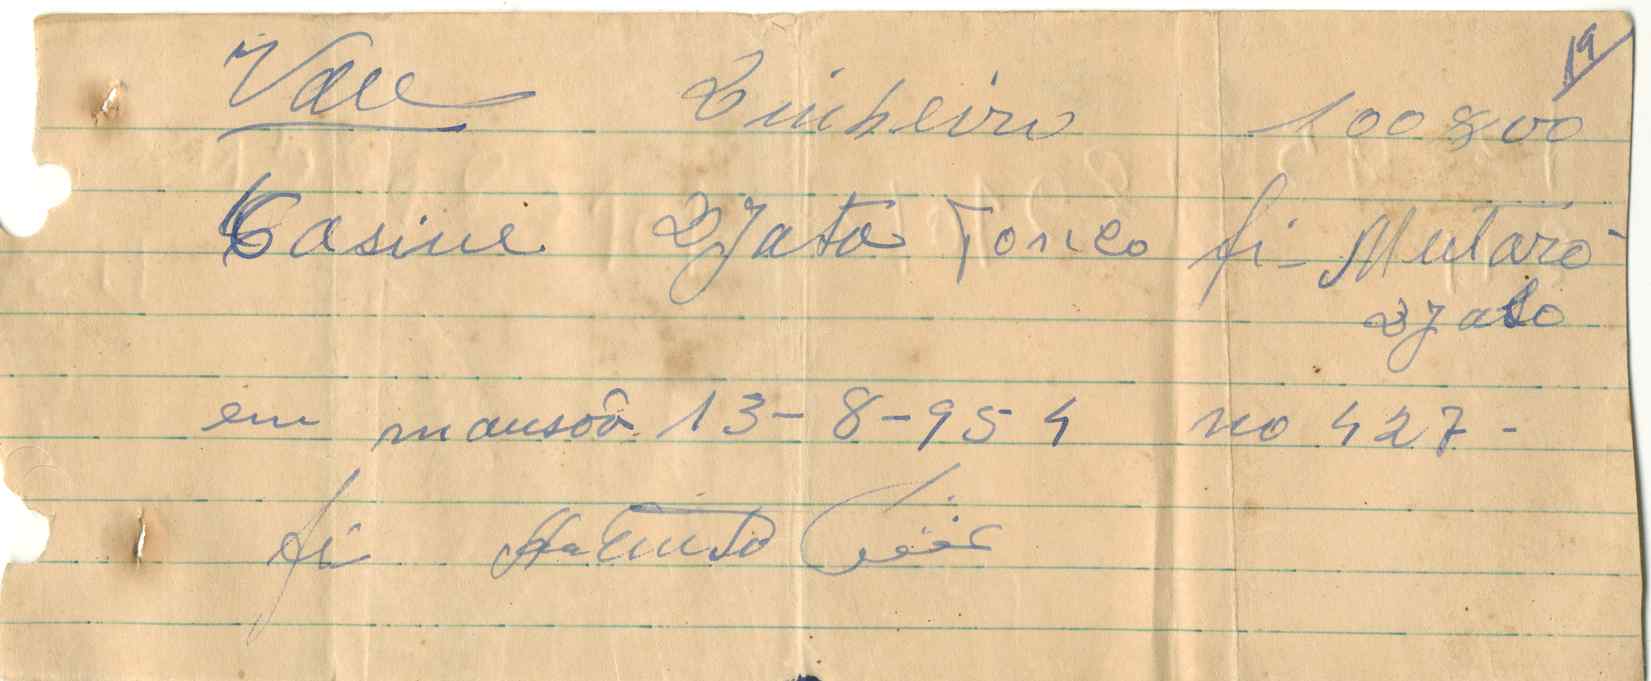 19
Vale Dinheiro 100$00
Casine Djata Tonco fi- Mutaro
Djalo
em mansoâ 13-8-954 no 427-
fi